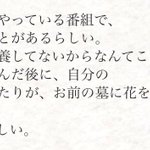 やっている番組で、
とがあるらしい。
養してないからなんてこ
んだ後に、自分の
たりが、お前の墓に花を
しい。